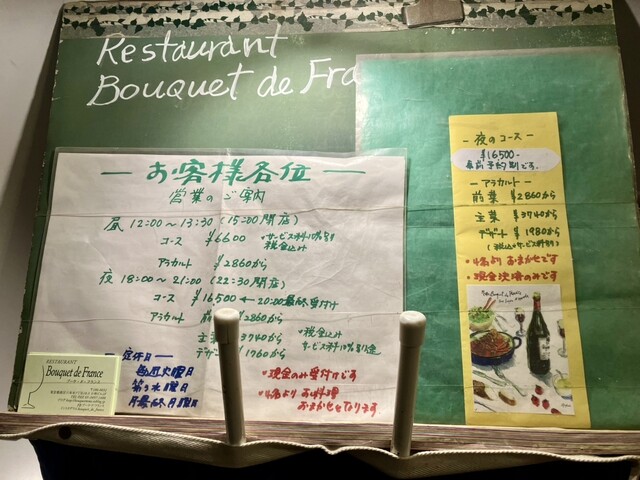 Restaurant
Bouquet de Fra
お客様各位
営業のご案内
昼 12:00～13:30 (15:00閉店)
コース ¥6600 ・サービス料10%別
税金込み
アラカルト ¥2860から
夜 18:00～21:00 (22:30閉店)
コース ¥16,500 ← 20:00最終受付け
アラカルト 前 ¥2860から
主 ¥3740から ・税金込み
デザ ¥1760から サービス料10%別途
定休日
毎週火曜日
第3水曜日
月最終月曜日
・現金のみ受付けです
・4名より お料理
おまかせとなります
RESTAURANT
Bouquet de France
ブーケ・ド・フランス
－夜のコース－
¥16500-
事前予約制です。
－アラカルト－
前菜 ¥2860から
主菜 ¥3740から
デザート ¥1980から
(税込・サービス料別)
・4名より おまかせです
・現金決済のみです